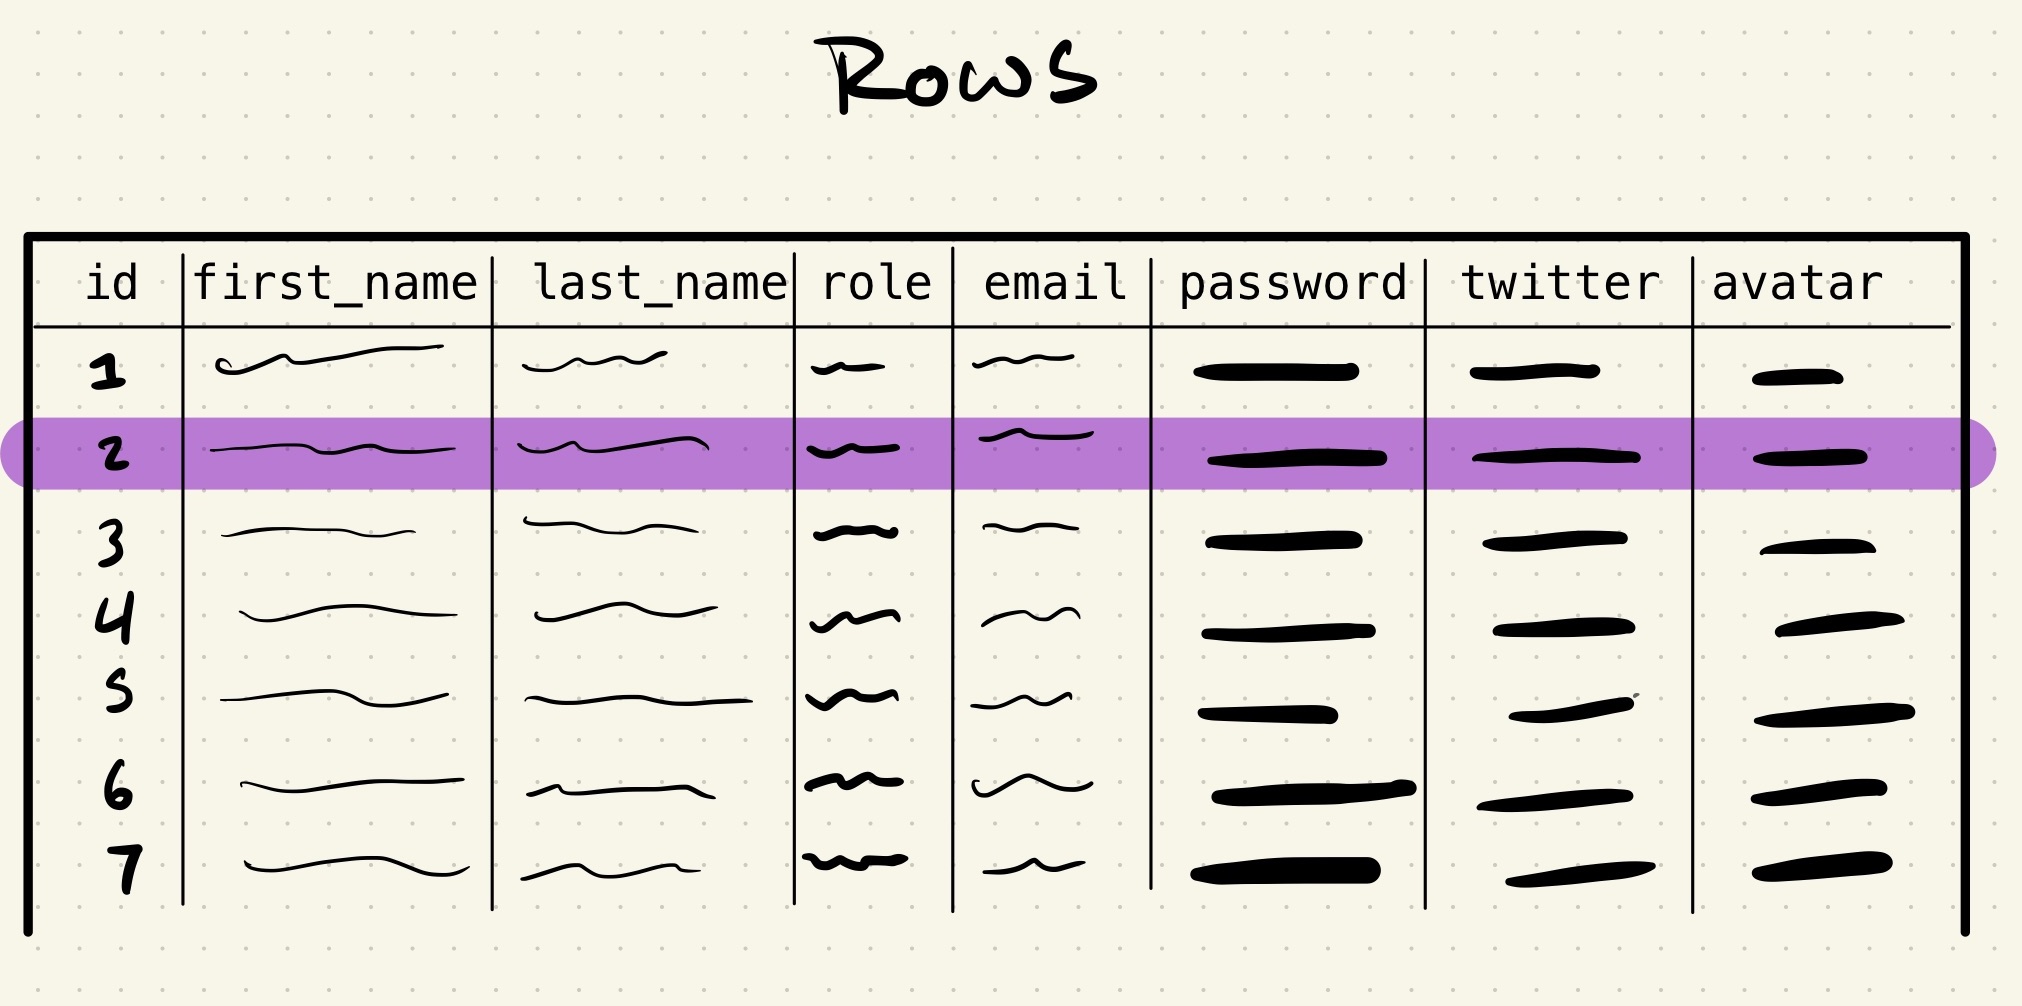 Rows
id first_name last_name role email password twitter avatar
1
2
3
4
5
6
7